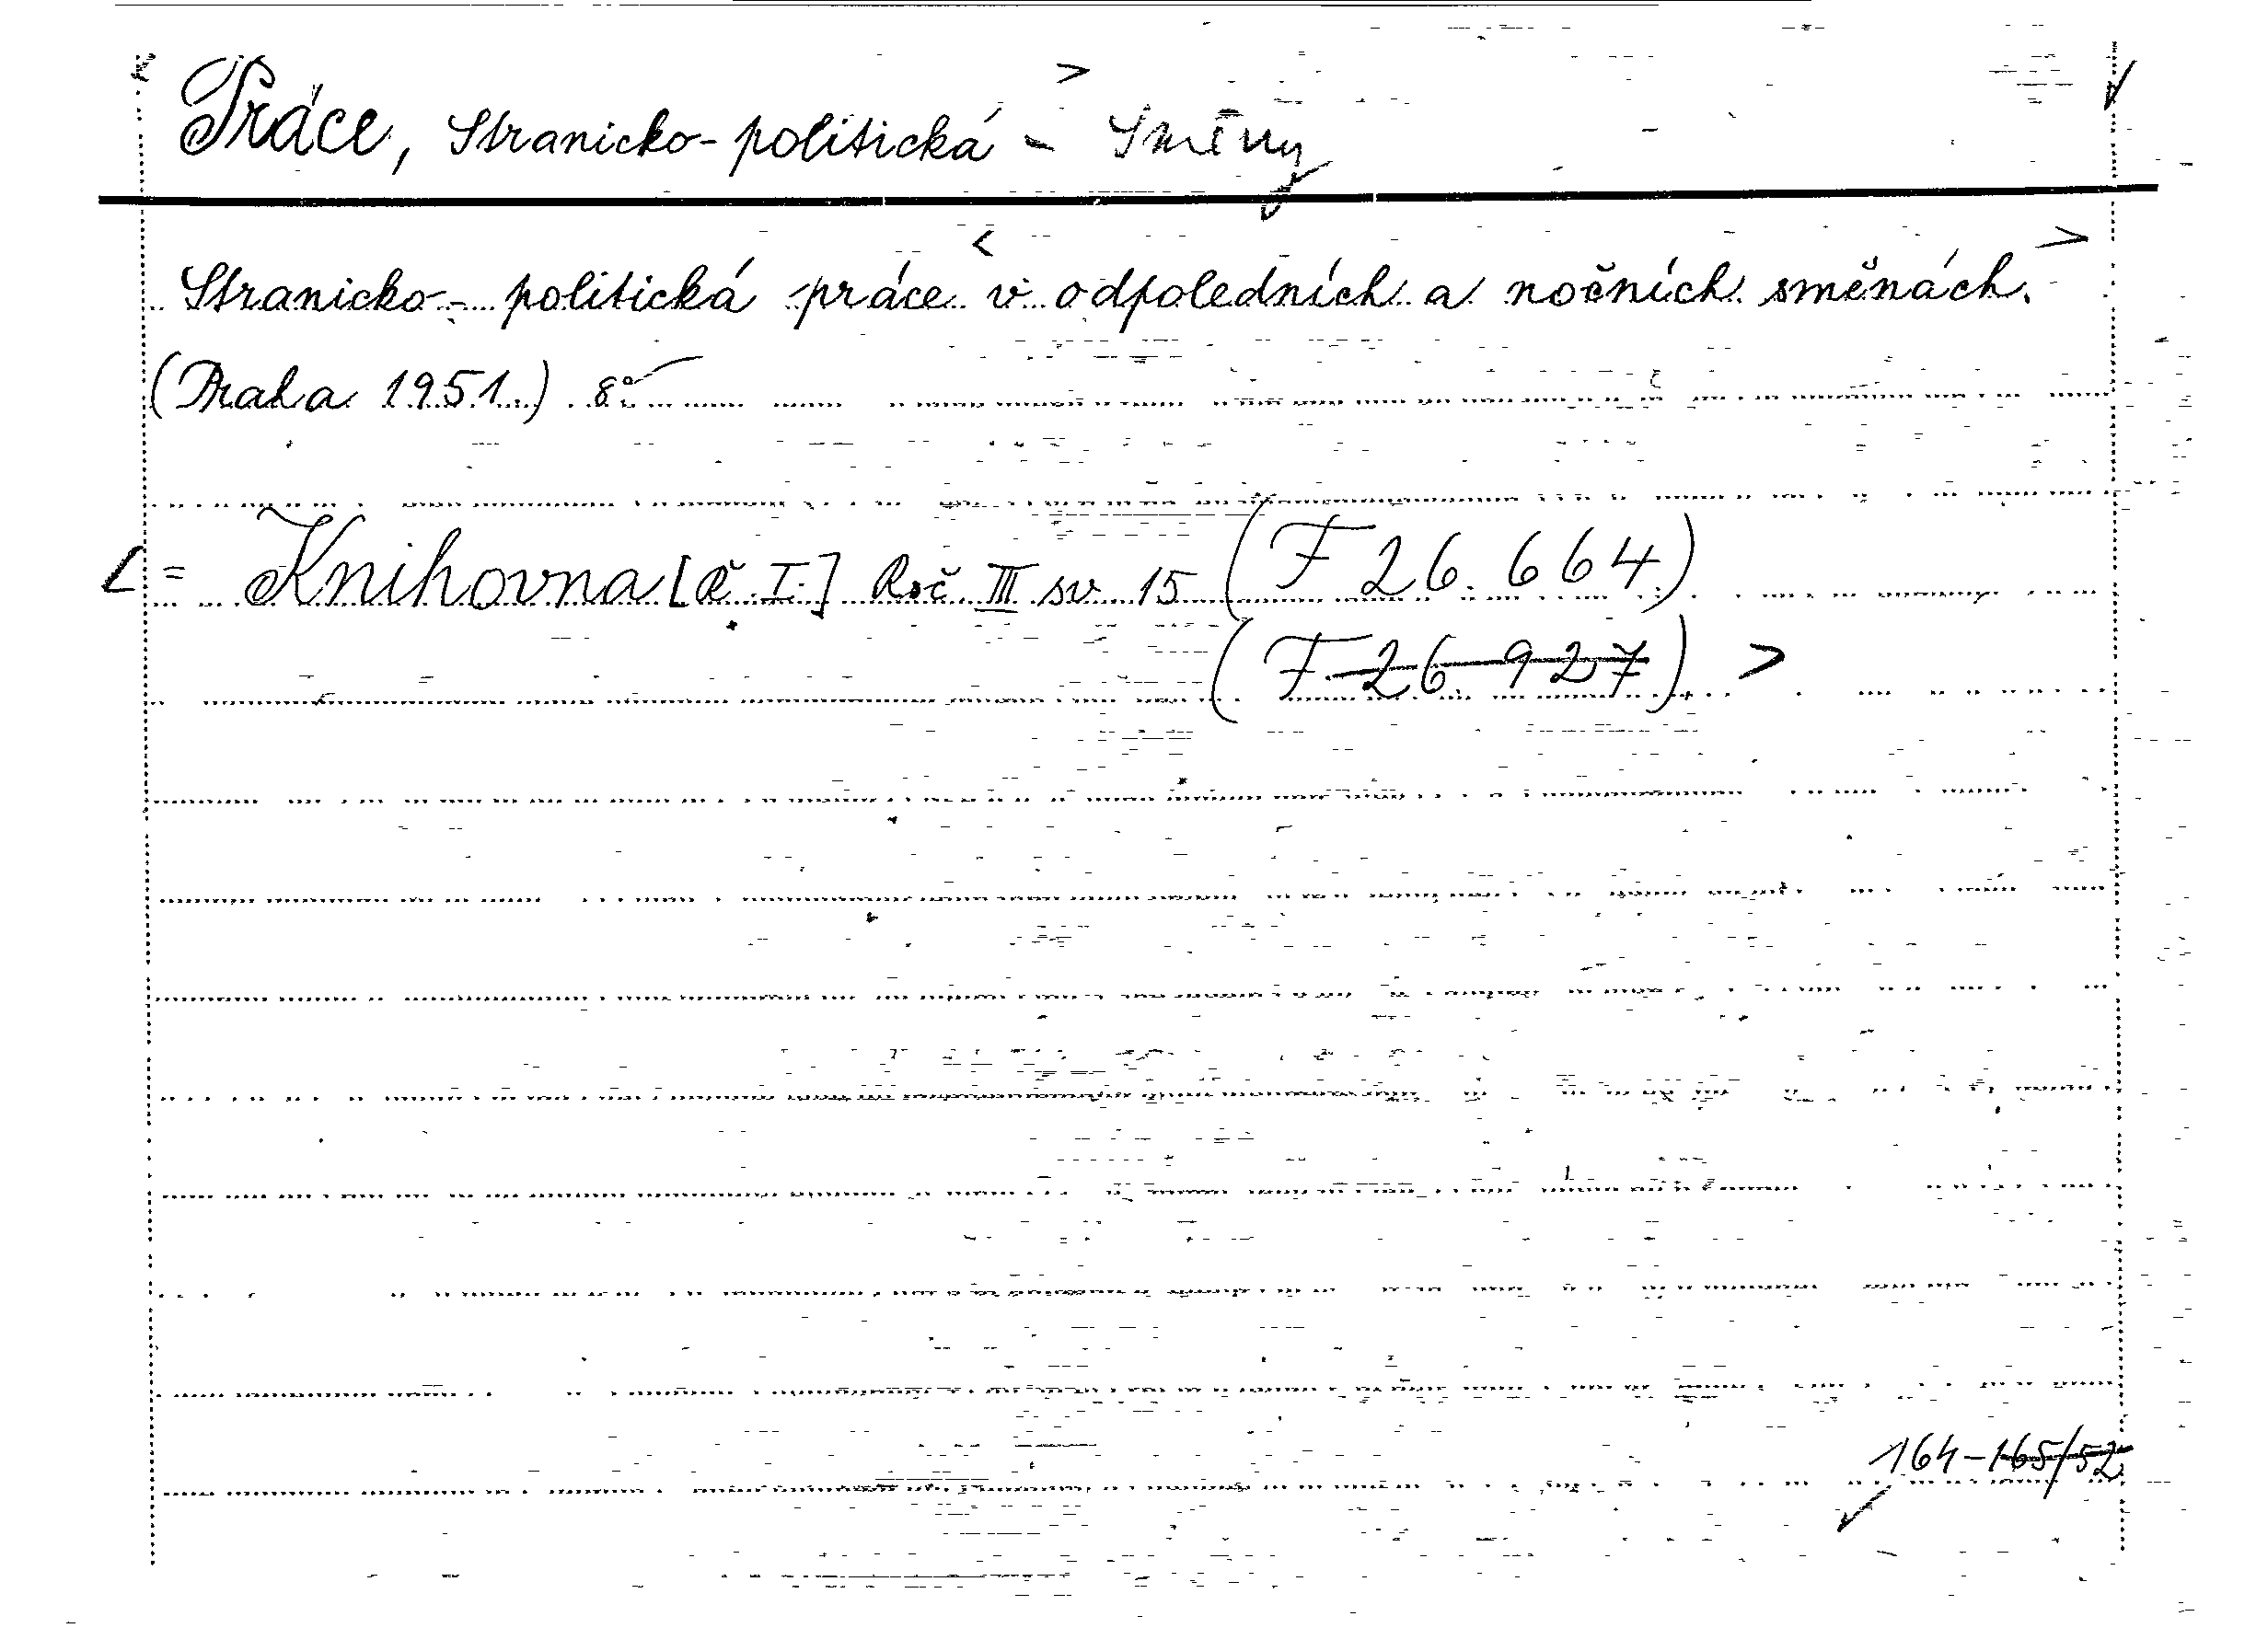 Práce, Stranicko-politická - Směny
Stranicko-politická práce v odpoledních a nočních směnách.
(Praha 1951.) 8°
= Knihovna [Ř. I.] Roč III sv. 15 (F 26.664)
(F 26.927)
164-165/52